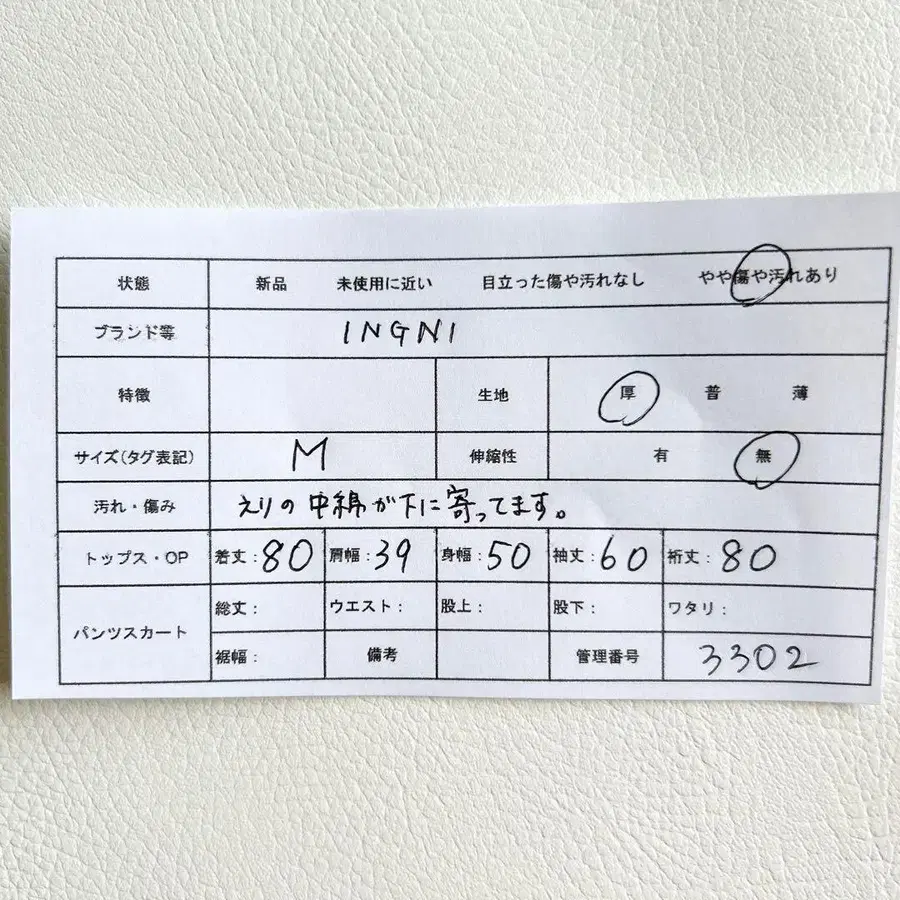 状態 新品 未使用に近い 目立った傷や汚れなし やや傷や汚れあり
ブランド等 INGNI
特徴 生地 厚 普 薄
サイズ(タグ表記) M 伸縮性 有 無
汚れ・傷み えりの中綿が下に寄ってます。
トップス・OP 着丈:80 肩幅:39 身幅:50 袖丈:60 裄丈:80
パンツスカート 総丈: ウエスト: 股上: 股下: ワタリ:
裾幅: 備考 管理番号 3302